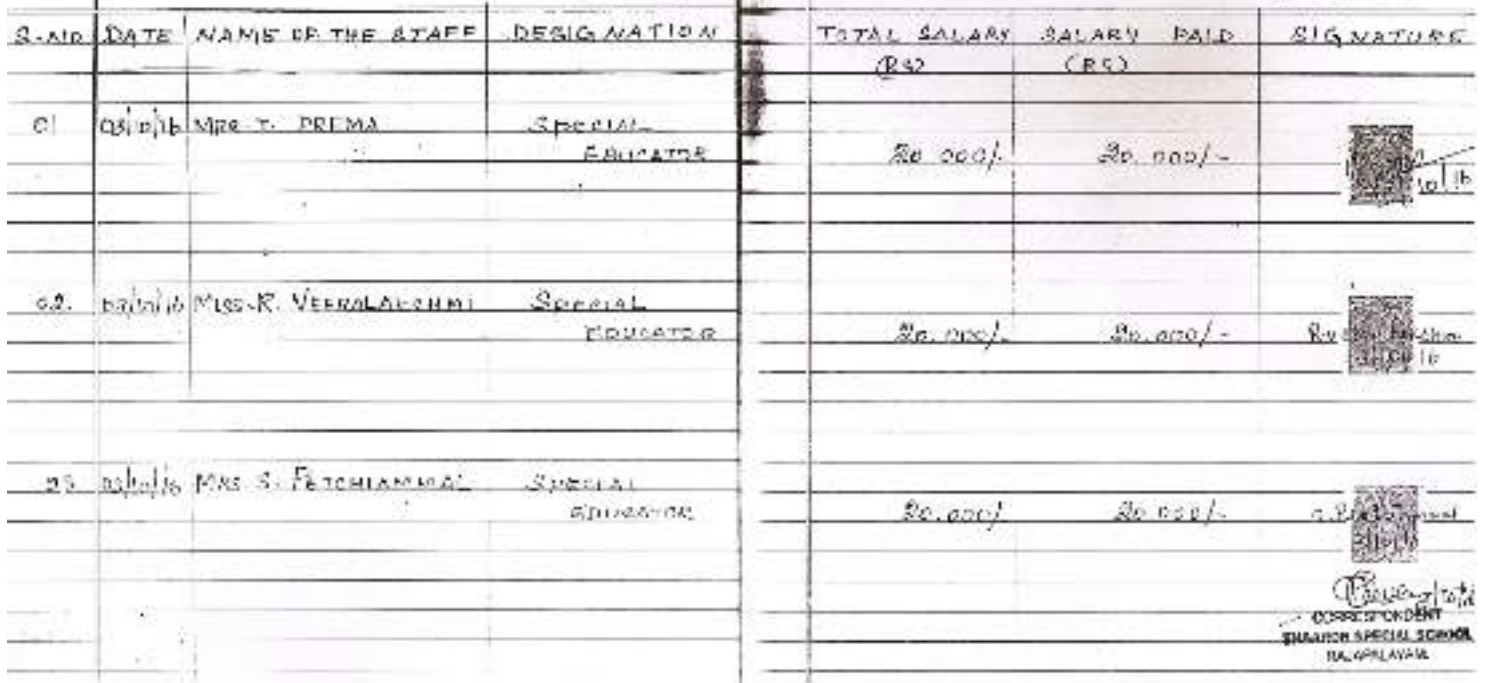 S.NO DATE NAME OF THE STAFF DESIGNATION TOTAL SALARY (RS) SALARY PAID (RS) SIGNATURE
01 03/10/16 MRS. T. PREMA SPECIAL EDUCATOR 20.000/- 20.000/- 10/16
02. 03/10/16 MISS. R. VEERALAKSHMI SPECIAL EDUCATOR 20.000/- 20.000/-
03 03/10/16 MRS. S. PETCHIAMMAL SPECIAL EDUCATOR 20.000/- 20.000/-
CORRESPONDENT
SHAARON SPECIAL SCHOOL
RAJAPALAYAM.